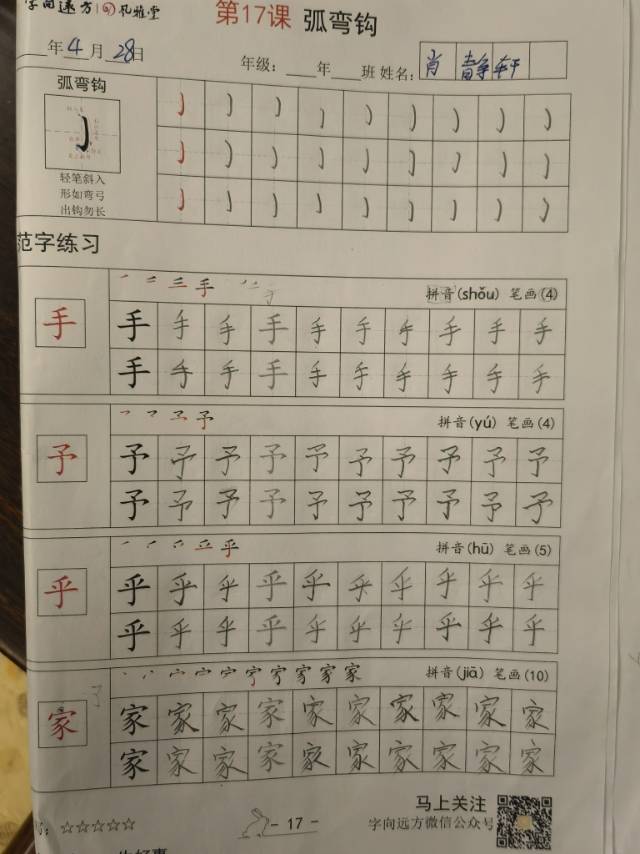 字向远方 孔雅堂
第17课 弧弯钩
年4月28日
年级：____年____班 姓名： 肖 静 轩
弧弯钩
轻笔斜入
形如弯弓
出钩勿长
范字练习
手 拼音(shǒu) 笔画(4)
手 手 手 手 手 手 手 手 手 手
手 手 手 手 手 手 手 手 手 手
予 拼音(yú) 笔画(4)
予 予 予 予 予 予 予 予 予 予
予 予 予 予 予 予 予 予 予 予
乎 拼音(hū) 笔画(5)
乎 乎 乎 乎 乎 乎 乎 乎 乎 乎
乎 乎 乎 乎 乎 乎 乎 乎 乎 乎
家 拼音(jiā) 笔画(10)
家 家 家 家 家 家 家 家 家 家
家 家 家 家 家 家 家 家 家 家
☆☆☆☆☆
- 17 -
马上关注
字向远方微信公众号